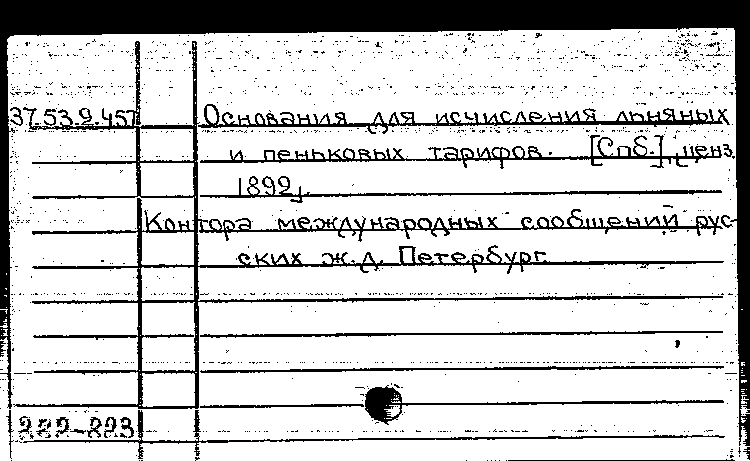 37.53.9.457 Основания для исчисления льняных
и пеньковых тарифов. [Спб.], ценз.
1892.
Контора международных сообщений рус-
ских ж.д. Петербург
382-893